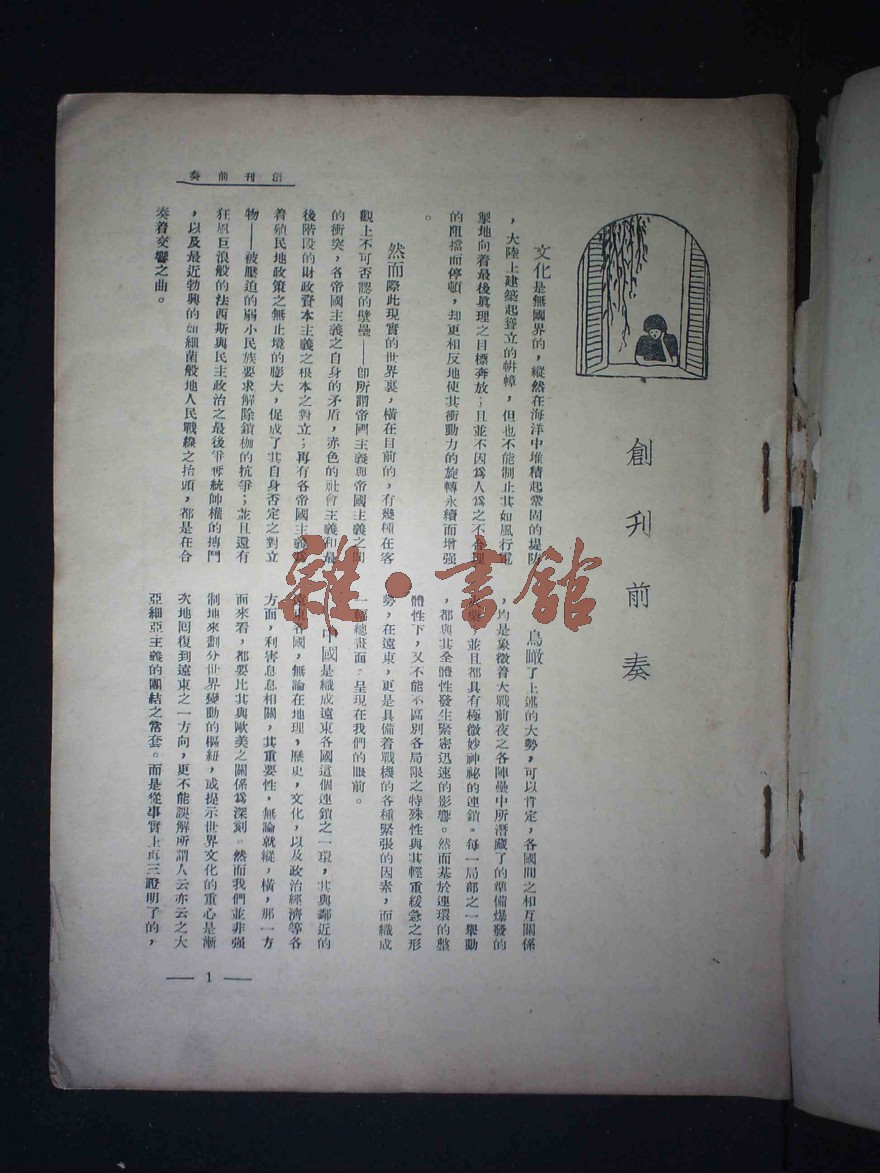 創刊前奏
創刊前奏
文化是無國界的,縱然在海洋中堆積起鞏固的堤防
,大陸上建築起聳立的帡幛,但也不能制止其如風行電
掣地向着最後眞理之目標奔放;且並不因爲人爲之不合理
的阻擋而停頓,却更相反地使其衝動力的旋轉永續而增强
。
然而際此現實的世界裏,橫在目前的,有幾種在客
觀上不可否認的壁壘——卽所謂帝國主義與帝國主義之間
的衝突,各帝國主義之自身的矛盾,赤色的社會主義和最
後階段的財政資本主義之根本之對立;再有各帝國主義爲
着殖民地政策之無止境的膨大,促成了其自身否定之對立
物——被壓迫的弱小民族要求解除鎖枷的抗爭;並且還有
狂風巨浪般的法西斯與民主政治之最後爭奪統帥權的搏鬥
,以及最近勃興的如細菌般地人民戰線之抬頭,都是在合
奏着交響之曲。
鳥瞰了上述的大勢,可以肯定,各國間之相互關係
,均是象徵着大戰前夜之各陣壘中所潛藏了的準備爆發的
,並且都具有極微妙神祕的連鎖。每一局部之一舉動
,都與其全體性發生緊密迅速的影響。然而基於連環的整
體性下,又不能不區別各局限之特殊性與其輕重緩急之形
勢,在遠東,更是具備着戰機的各種緊張的因素,而織成
一幅總畫面。呈現在我們的眼前。
中國是織成遠東各國這個連鎖之一環,其與鄰近的
遠東各國,無論在地理,歷史,文化,以及政治經濟等各
方面,利害息息相關,其重要性,無論就縱,橫,那一方
面來看,都要比其與歐美之關係爲深刻。然而我們並非强
制地來劃分世界變動的樞紐,或提示世界文化的重心是漸
次地囘復到遠東之一方向,更不能誤解所謂人云亦云之大
亞細亞主義的團結之常套。而是從事實上再三證明了的,
— 1 —
雜·書館